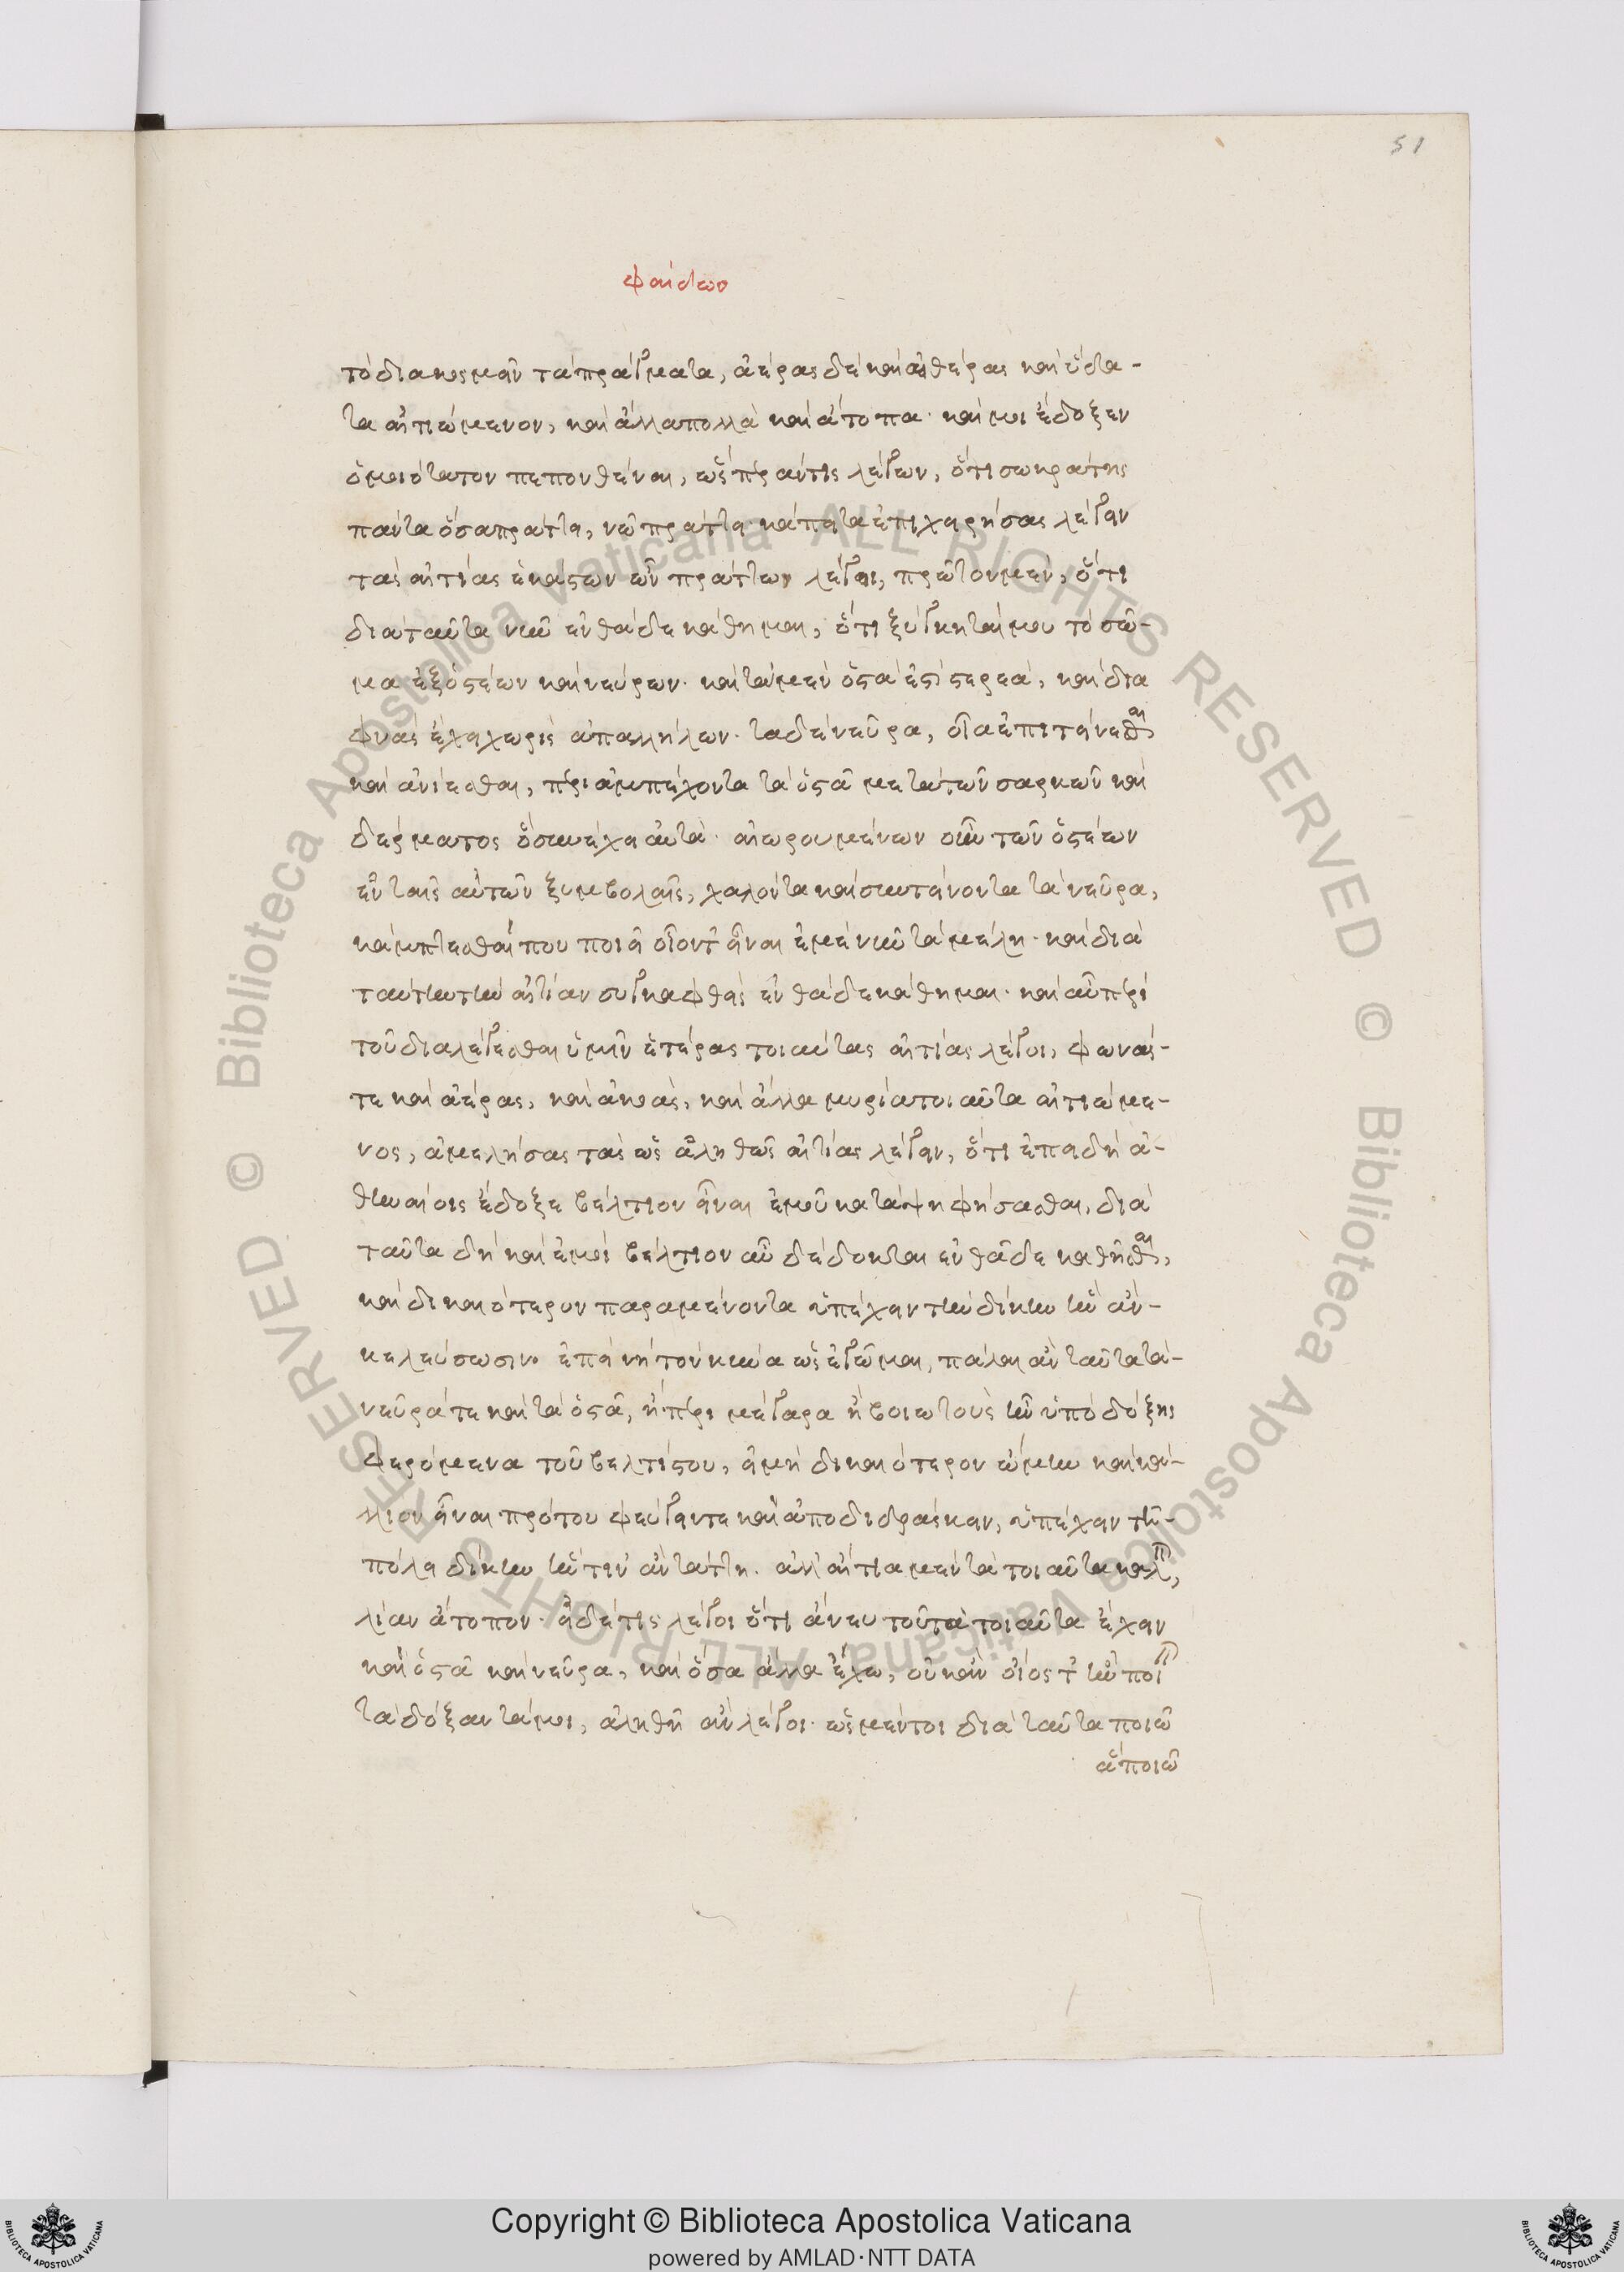 51
φαίδων
τὸ διακοσμεῖν τὰ πράγματα, ἀέρας δὲ καὶ αἰθέρας καὶ ὕδα-
τα αἰτιώμενον, καὶ ἄλλα πολλὰ καὶ ἄτοπα· καί μοι ἔδοξεν
ὁμοιότατον πεπονθέναι, ὥσπερ ἄν τις λέγων, ὅτι σωκράτης
πάντα ὅσα πράττει, νῷ πράττει· κἄπειτα ἐπιχειρήσας λέγειν
τὰς αἰτίας ἑκάστων ὧν πράττω, λέγοι, πρῶτον μὲν, ὅτι
διὰ ταῦτα νῦν ἐνθάδε κάθημαι, ὅτι ξύγκειταί μου τὸ σῶ-
μα ἐξ ὀστέων καὶ νεύρων· καὶ τὰ μὲν ὀστᾶ ἐστὶ στερεά, καὶ δια
φυὰς ἔχει χωρὶς ἀπ' ἀλλήλων· τὰ δὲ νεῦρα, οἷα ἐπιτείνεσθαι
καὶ ἀνίεσθαι, περιαμπέχοντα τὰ ὀστᾶ μετὰ τῶν σαρκῶν καὶ
δέρματος ὃ συνέχει αὐτά· αἰωρουμένων οὖν τῶν ὀστέων
ἐν ταῖς αὐτῶν ξυμβολαῖς, χαλῶντα καὶ συντείνοντα τὰ νεῦρα,
κάμπτεσθαί που ποιεῖ οἷόν τ' εἶναι ἐμὲ νῦν τὰ μέλη· καὶ διὰ
ταύτην τὴν αἰτίαν συγκαμφθεὶς ἐνθάδε κάθημαι· καὶ αὖ περὶ
τοῦ διαλέγεσθαι ὑμῖν ἑτέρας τοιαύτας αἰτίας λέγοι, φωνάς-
τε καὶ ἀέρας, καὶ ἀκοὰς, καὶ ἄλλα μυρία τοιαῦτα αἰτιώμε-
νος, ἀμελήσας τὰς ὡς ἀληθῶς αἰτίας λέγειν, ὅτι ἐπειδὴ ἀ-
θηναίοις ἔδοξε βέλτιον εἶναι ἐμοῦ καταψηφίσασθαι, διὰ
ταῦτα δὴ καὶ ἐμοὶ βέλτιον αὖ δέδοκται ἐνθάδε καθῆσθαι,
καὶ δικαιότερον παραμένοντα ὑπέχειν τὴν δίκην ἣν ἂν-
κελεύσωσιν· ἐπεὶ νὴ τὸν κύνα ὡς ἐγᾦμαι, πάλαι ἂν ταῦτα τὰ-
νεῦρά τε καὶ τὰ ὀστᾶ, ἢ περὶ μέγαρα ἢ βοιωτοὺς ἦν ὑπὸ δόξης
φερόμενα τοῦ βελτίστου, εἰ μὴ δικαιότερον ᾤμην καὶ κάλ-
λιον εἶναι πρὸ τοῦ φεύγειν τε καὶ ἀποδιδράσκειν, ὑπέχειν τῇ-
πόλει δίκην ἥντιν' ἂν τάττῃ· ἀλλ' αἴτια μὲν τὰ τοιαῦτα καλεῖν,
λίαν ἄτοπον· εἰ δέ τις λέγοι ὅτι ἄνευ τοῦ τὰ τοιαῦτα ἔχειν
καὶ ὀστᾶ καὶ νεῦρα, καὶ ὅσα ἄλλα ἔχω, οὐκ ἂν οἷός τ' ἦν ποιεῖν
τὰ δόξαντά μοι, ἀληθῆ ἂν λέγοι· ὡς μέντοι διὰ ταῦτα ποιῶ
ἃ ποιῶ
© Biblioteca Apostolica Vaticana ALL RIGHTS RESERVED © Biblioteca Apostolica Vaticana ALL RIGHTS RESERVED
Copyright © Biblioteca Apostolica Vaticana
powered by AMLAD·NTT DATA
BIBLIOTECA APOSTOLICA VATICANA
BIBLIOTECA APOSTOLICA VATICANA